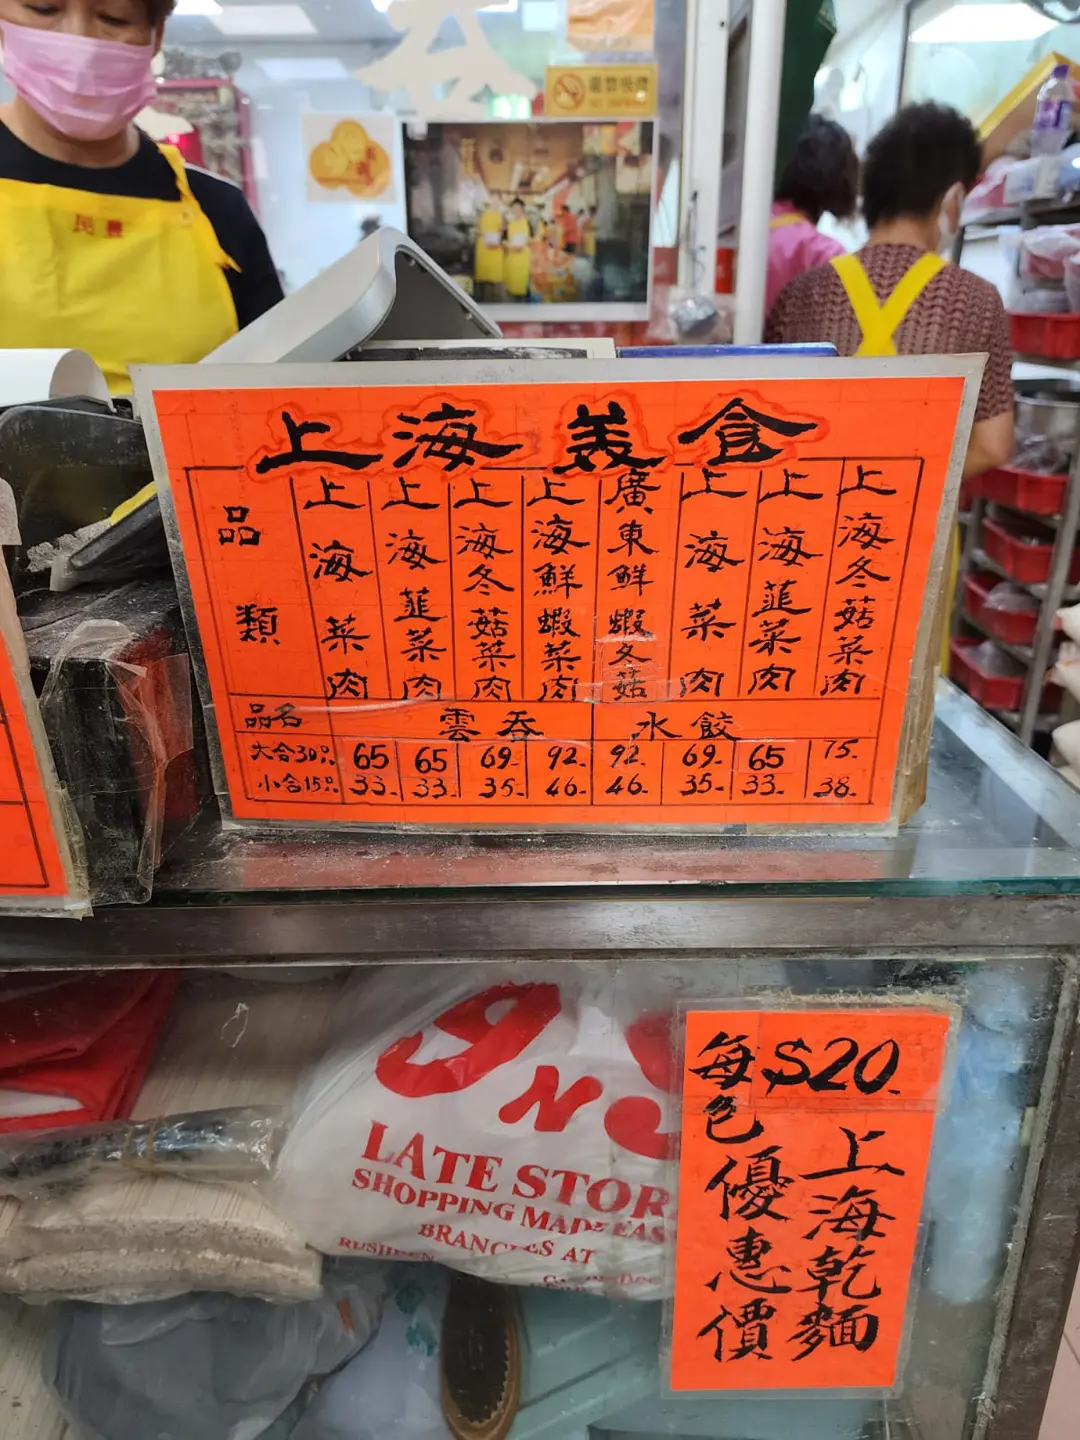 民豐
上海美食
品類
上海菜肉
上海韮菜肉
上海冬菇菜肉
上海鮮蝦菜肉
廣東鮮蝦冬菇
上海菜肉
上海韮菜肉
上海冬菇菜肉
品名 雲吞 水餃
大合30只 65 65 69. 92. 92. 69. 65 75.
小合15只 33. 33. 35. 46. 46. 35. 33. 38.
每色優惠價
$20.
上海乾麵
LATE STOR
SHOPPING MADE EAS
BRANCHES AT